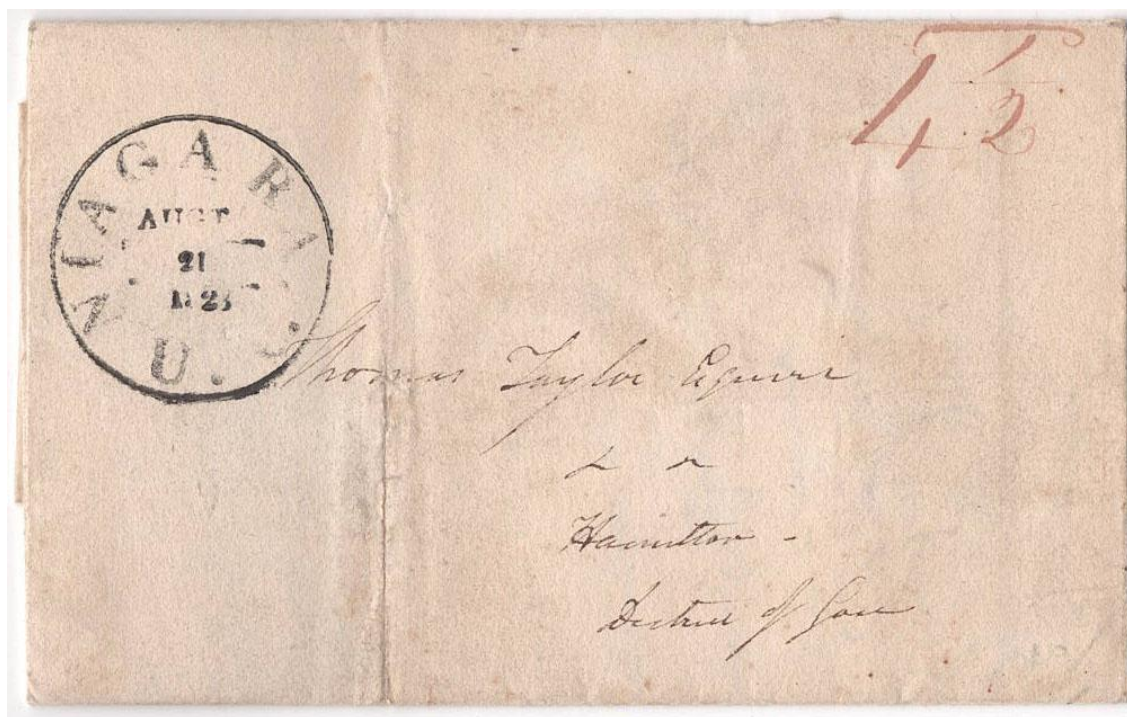 4 1/2
NIAGARA
AUGT
21
U.
Thomas Taylor Esquire
Hamilton -
District of Gore